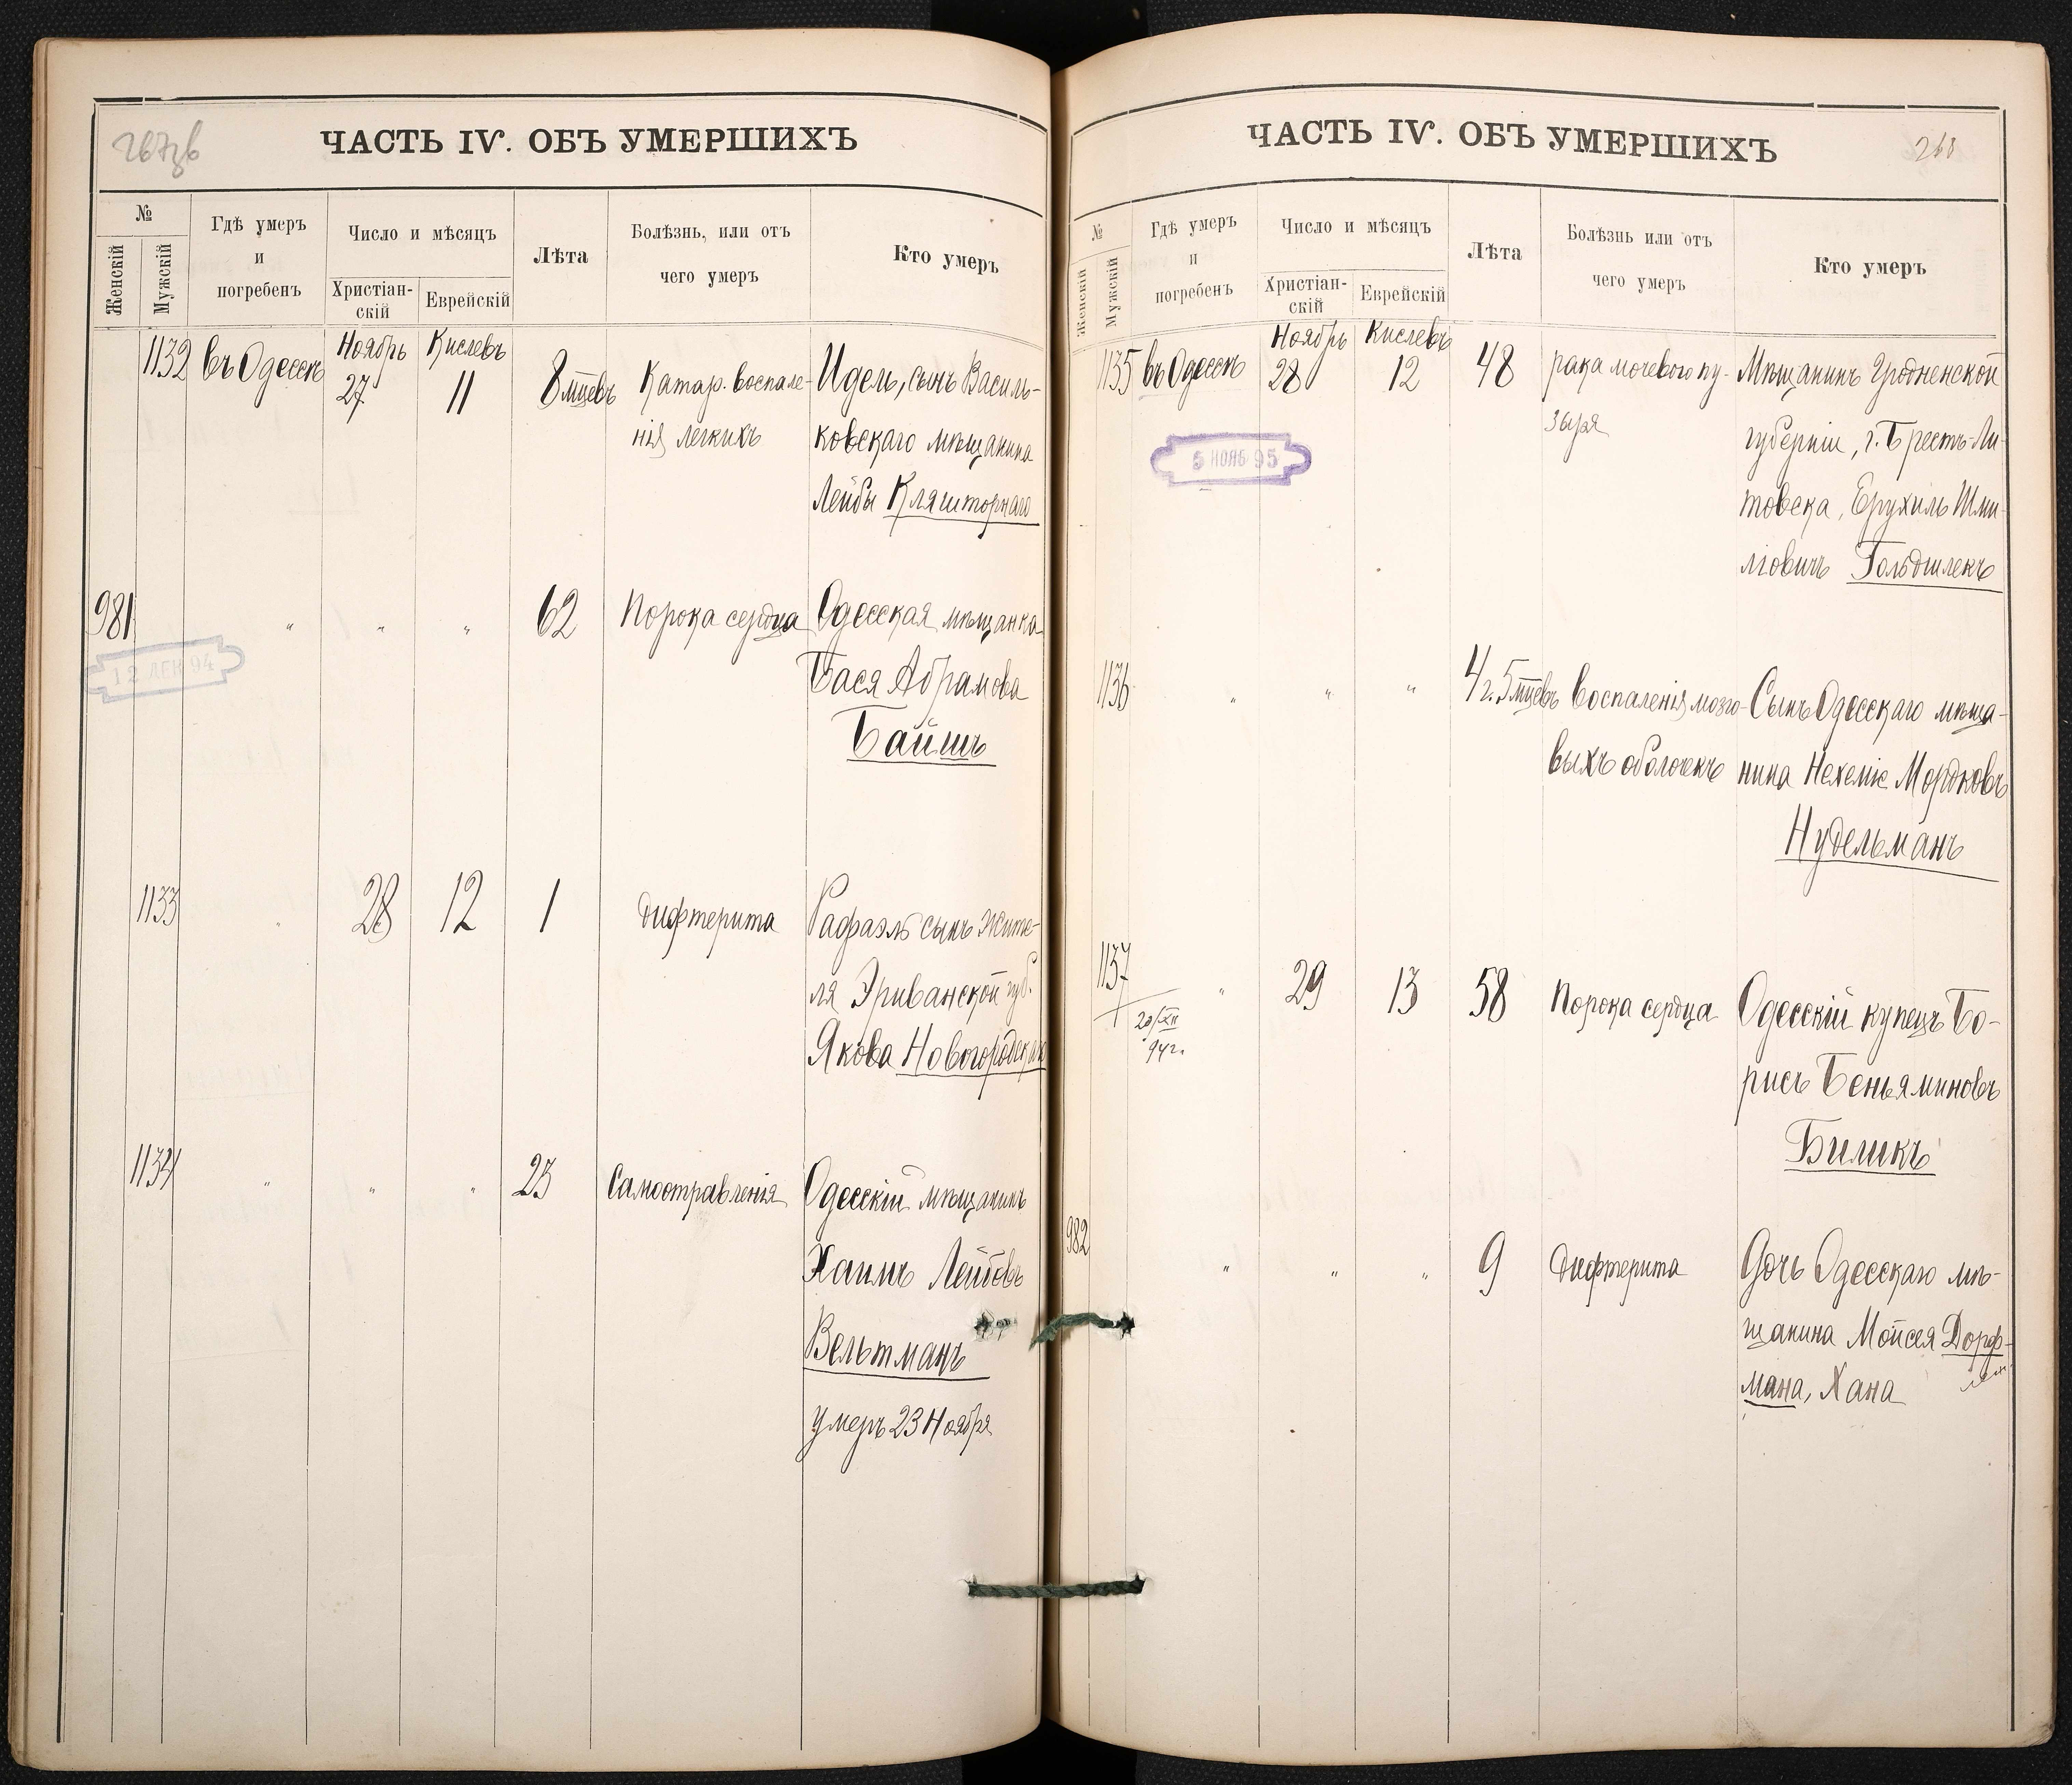 267об
ЧАСТЬ IV. ОБЪ УМЕРШИХЪ
№
Женскій
Мужскій
Гдѣ умеръ
и
погребенъ
Число и мѣсяцъ
Христіан-
скій
Еврейскій
Лѣта
Болѣзнь, или отъ
чего умеръ
Кто умеръ
1132 въ Одессѣ Ноябрь 27 Кислевъ 11 8 мцевъ Катар. воспале- Идель, сынъ Василь-
нія легкихъ ковскаго мѣщанина
Лейбы Кляшторнаго
981 " " " 62 Порока сердца Одесская мѣщанка
12 ДЕК 94
Бася Абрамова
Байшъ
1133 " 28 12 1 Дифтерита Рафаэль сынъ жите-
ля Эриванской губ.
Якова Новогородскаго
1134 " " " 23 Самоотравленія Одесскій мѣщанинъ
Хаимъ Лейбовъ
Вельтманъ
умеръ 23 Ноября
ЧАСТЬ IV. ОБЪ УМЕРШИХЪ
268
№
Женскій
Мужскій
Гдѣ умеръ
и
погребенъ
Число и мѣсяцъ
Христіан-
скій
Еврейскій
Лѣта
Болѣзнь или отъ
чего умеръ
Кто умеръ
1135 въ Одессѣ Ноябрь 28 Кислевъ 12 48 рака мочевого пу- Мѣщанинъ Гродненской
зыря губерніи, г. Брестъ-Ли-
5 НОЯБ 95
товска, Ерухиль Шми-
ліовичъ Гольдшлекъ
1136 " " " 4 г. 5 мцевъ Воспаленія мозго- Сынъ Одесскаго мѣща-
выхъ оболочекъ нина Нехеміе Мордковъ
Нудельманъ
1137 " 29 13 58 Порока сердца Одесскій купецъ Бо-
20/XII
94 г.
рисъ Беньяминовъ
Биликъ
982 " " " 9 Дифтерита Дочь Одесскаго мѣ-
щанина Мойсея Дорф-
мана, Хана